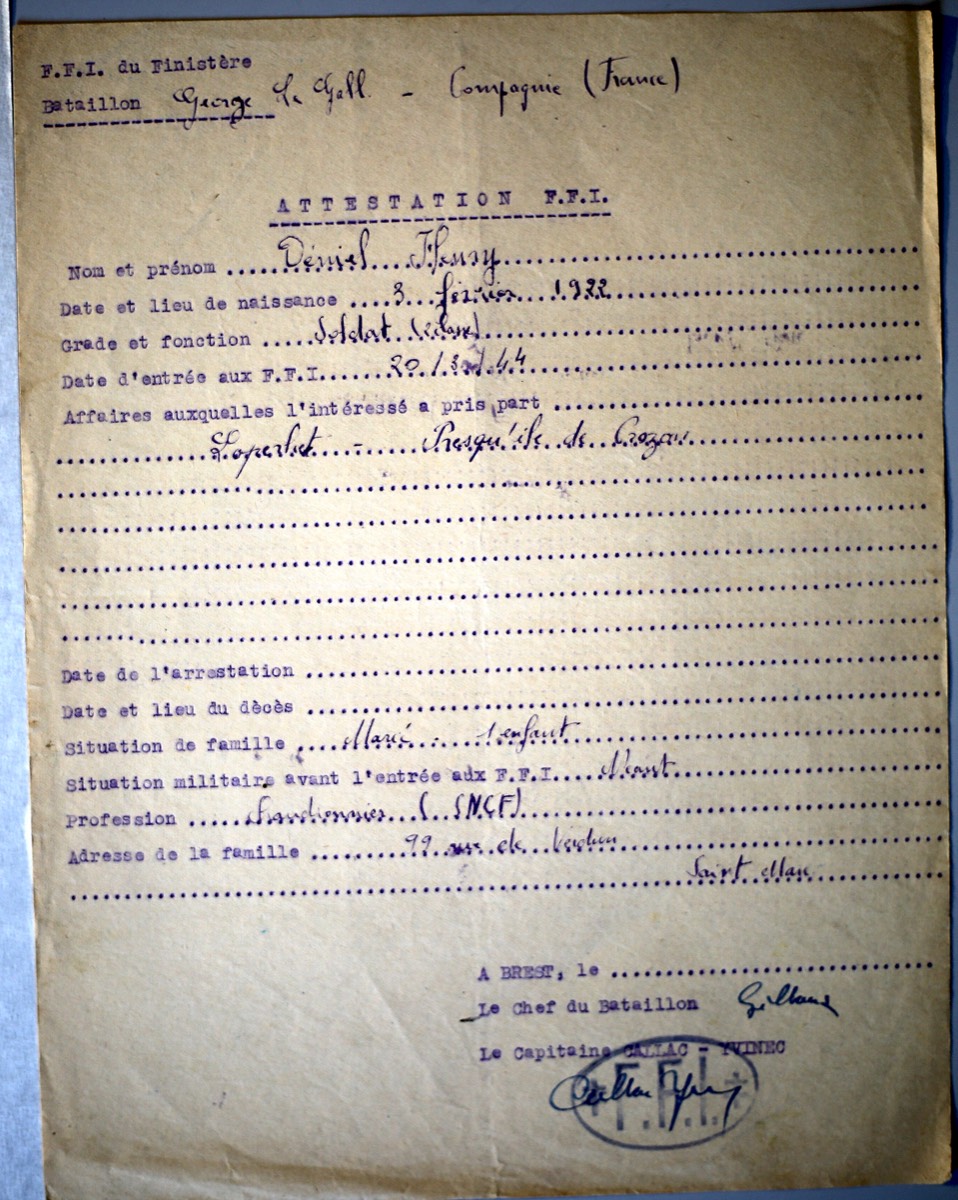 F.F.I. du Finistère
Bataillon George Le Gall - Compagnie (France)
ATTESTATION F.F.I.
Nom et prénom ....... Déniel Henry
Date et lieu de naissance .... 3 février 1922
Grade et fonction .... Soldat (2 classe)
Date d'entrée aux F.F.I...... 20/3/44
Affaires auxquelles l'intéressé a pris part ....................
Loperhet - Presqu'île de Crozon
Date de l'arrestation ....................
Date et lieu du dècès ....................
Situation de famille .... Marié - 1 enfant
Situation militaire avant l'entrée aux F.F.I....
Profession ..... (SNCF)
Adresse de la famille ........ 99 rue de Verdun
Saint Marc
A BREST, le ....................
Le Chef du Bataillon
Le Capitaine CALLAC - YVINEC
F.F.I.